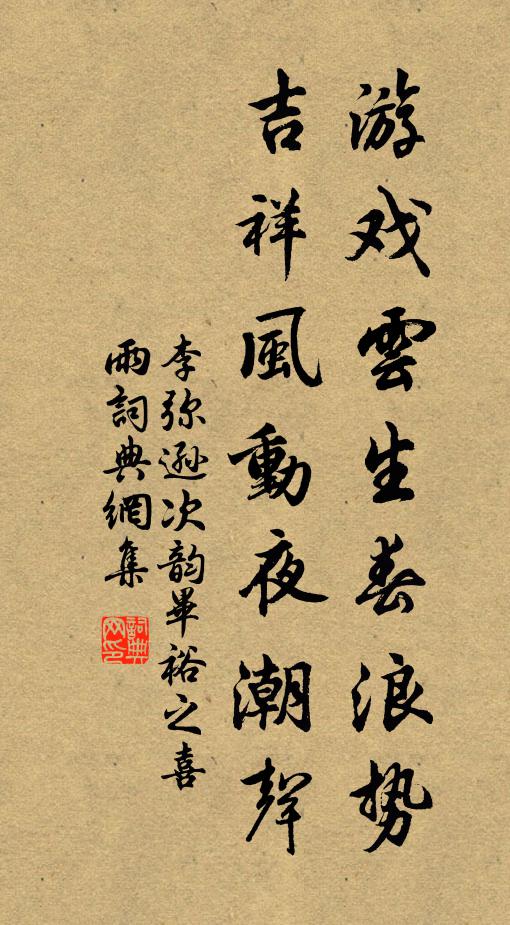 游戏雲生春浪势
吉祥風動夜潮聲
李弥遜次韵畢裕之喜
雨詞典網集
詞典网印